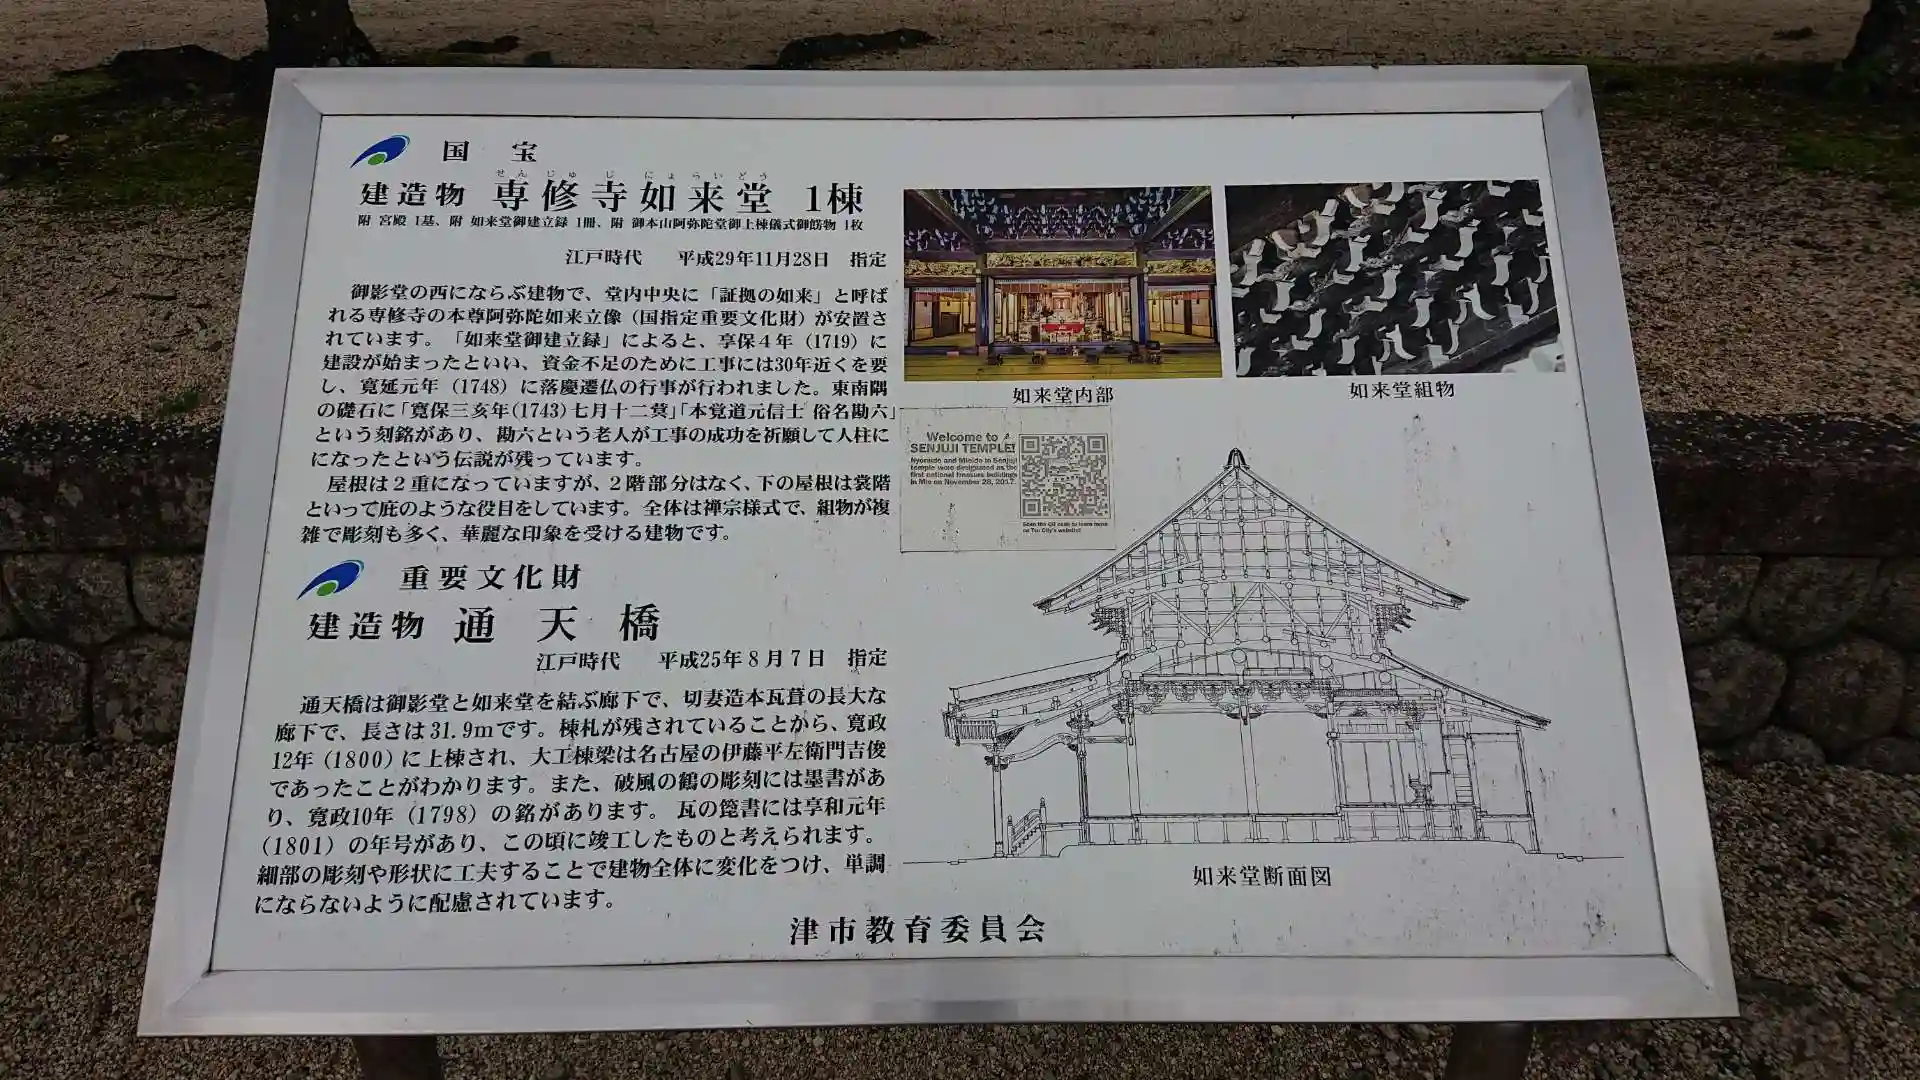 国宝
せんじゅじにょらいどう
建造物 専修寺如来堂 1棟
附 宮殿 1基、附 如来堂御建立録 1冊、附 御本山阿弥陀堂御上棟儀式御餝物 1枚
江戸時代 平成29年11月28日 指定
御影堂の西にならぶ建物で、堂内中央に「証拠の如来」と呼ば
れる専修寺の本尊阿弥陀如来立像（国指定重要文化財）が安置さ
れています。「如来堂御建立録」によると、享保４年（1719）に
建設が始まったといい、資金不足のために工事には30年近くを要
し、寛延元年（1748）に落慶遷仏の行事が行われました。東南隅
の礎石に「寛保三亥年(1743)七月十二蓂」「本覚道元信士 俗名勘六」
という刻銘があり、勘六という老人が工事の成功を祈願して人柱に
になったという伝説が残っています。
屋根は２重になっていますが、２階部分はなく、下の屋根は裳階
といって庇のような役目をしています。全体は禅宗様式で、組物が複
雑で彫刻も多く、華麗な印象を受ける建物です。
重要文化財
建造物 通天橋
江戸時代 平成25年８月７日 指定
通天橋は御影堂と如来堂を結ぶ廊下で、切妻造本瓦葺の長大な
廊下で、長さは31.9mです。棟札が残されていることから、寛政
12年（1800）に上棟され、大工棟梁は名古屋の伊藤平左衛門吉俊
であったことがわかります。また、破風の鶴の彫刻には墨書があ
り、寛政10年（1798）の銘があります。瓦の箆書には享和元年
（1801）の年号があり、この頃に竣工したものと考えられます。
細部の彫刻や形状に工夫することで建物全体に変化をつけ、単調
にならないように配慮されています。
如来堂内部
如来堂組物
Welcome to
SENJUJI TEMPLE!
Nyoraido and Mieido in Senjuji
temple were designated as the
first national treasure buildings
in Mie on November 28, 2017.
Scan the QR code to learn more
on Tsu City's website!
如来堂断面図
津市教育委員会